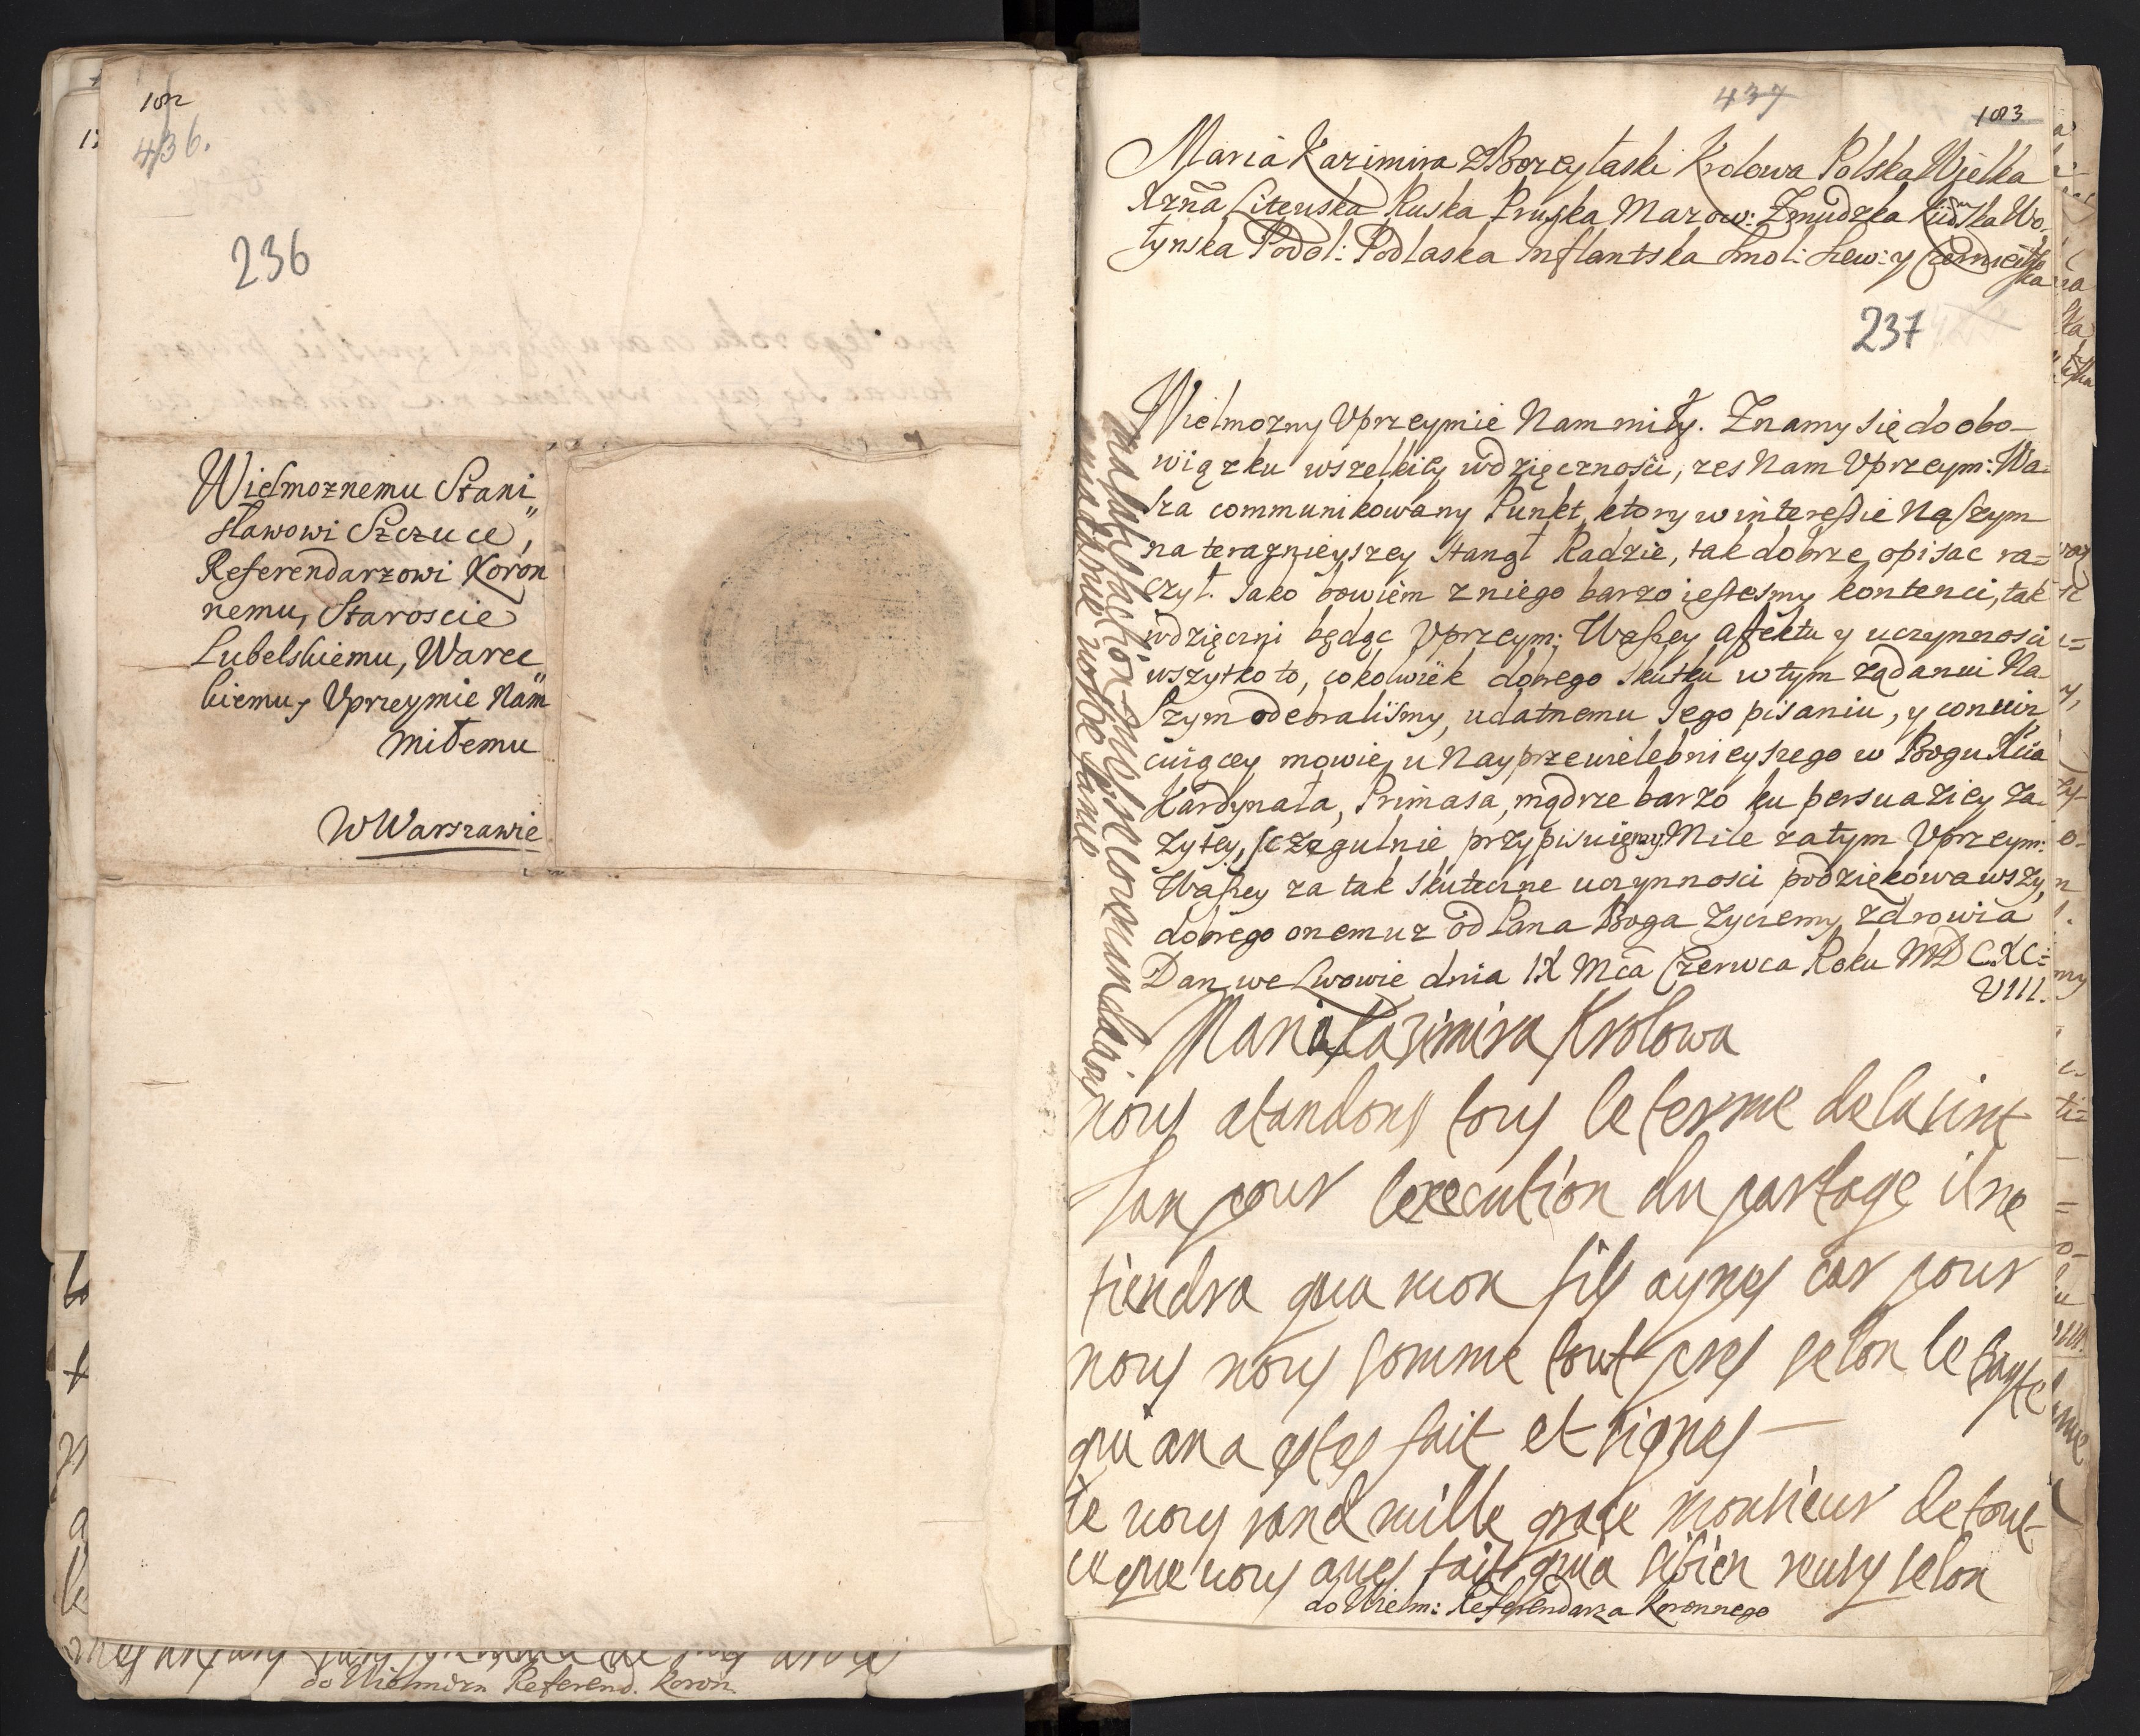 102
436.
236
Wielmoznemu Stani
sławowi Szczuce,
Referendarzowi Koron
nemu, Staroscie
Lubelskiemu, Warec
kiemu, Vprzeymie Nam
miłemu
W Warszawie
do Wielmozn Referend. Koron.
437
103
Maria Kazimira z Boza łaski Krolowa Polska Wielka
Xżna Litewska Ruska Pruska Mazow: Zmudzka Kiiowska Wo
łynska Podol: Podlaska Inflantska Smol: Siew: y Czerniecho
ska
237
Wielmozny Vprzeymie Nam miły. Znamy się do obo-
wiązku wszelkiey wdzięcznosci, zes Nam Vprzeym: Wa-
sza communikowany Punkt, ktory w interessie Naszym
na teraznieyszey stanął Radzie, tak dobrze opisac ra=
czył. Jako bowiem z niego barzo iestesmy kontenci, tak
wdzięczni będąc Vprzeym: Waszey affektu y uczynnosci
wszytko to, cokolwiek dobrego skutku w tym ządaniu Na
szym odebralismy, udatnemu Jego pisaniu, y conwin
cuiącey mowie, u Nayprzewielebnieyszego w Bogu Xcia
Kardynała, Primasa, mądrze barzo ku persuaziey za-
zytey, sczegulnie przypisuięmy. Mile zatym Vprzeym:
Waszey za tak skuteczne uczynnosci podziękowawszy,
dobrego onemuz od Pana Boga zyczemy zdrowia
Dan we Lwowie dnia IX Mca Czerwca Roku MD CXC=
VIII.
Maria Kazimira Krolowa
nous atandons tous le terme de la sint
Jan pour lexecution du partage il ne
tiendra qua mon fils aynes car pour
nous nous somme tout pres selon le
qui an a estes fait et signes
Je vous rand mille grace monsieur de tout
ce que vous aues fait qui a si bien reusy selon
do Wielm: Referendarza Koronnego